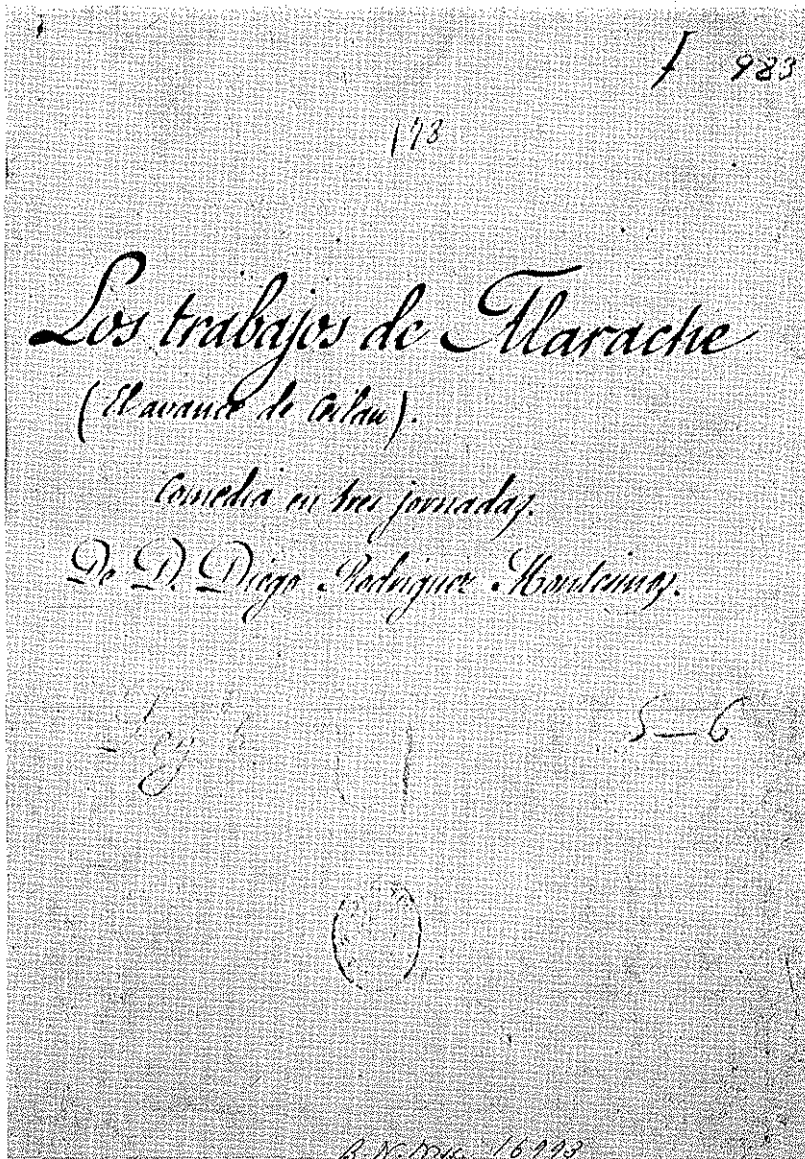 983
Los trabajos de Marache
(El avance de Ceilan).
Comedia en tres jornadas.
De D. Diego Rodriguez Montesinos.
Leg
5-6
B. N. Mss. 16993